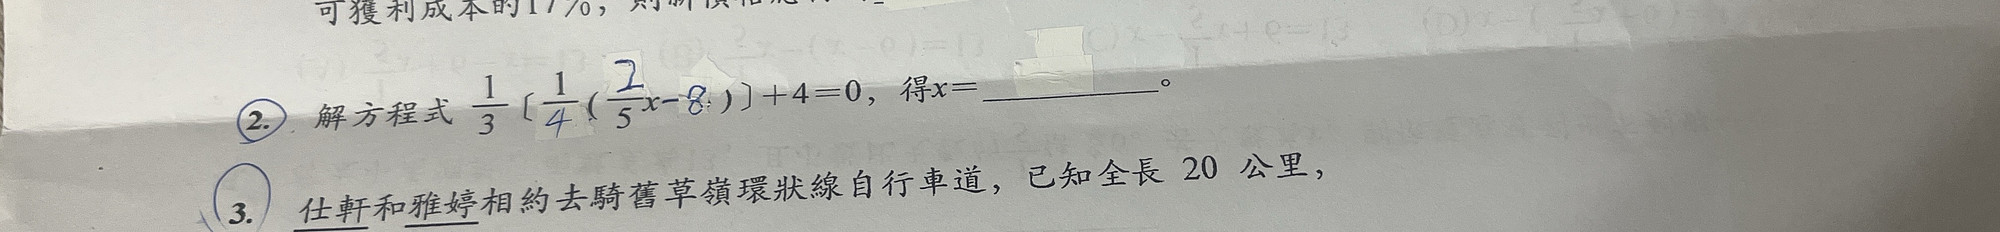 可獲利成本的17%，則新價格應
2. 解方程式 1/3〔1/4(2/5x-8)〕+4=0，得x=________。
3. 仕軒和雅婷相約去騎舊草嶺環狀線自行車道，已知全長 20 公里，